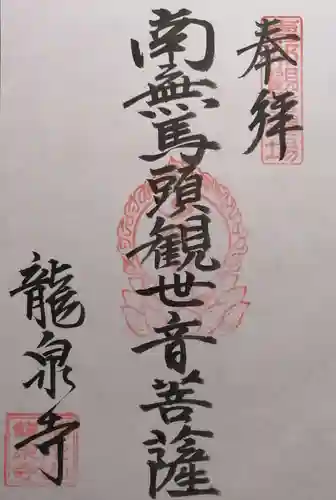 奉拝
南無馬頭観世音菩薩
龍泉寺